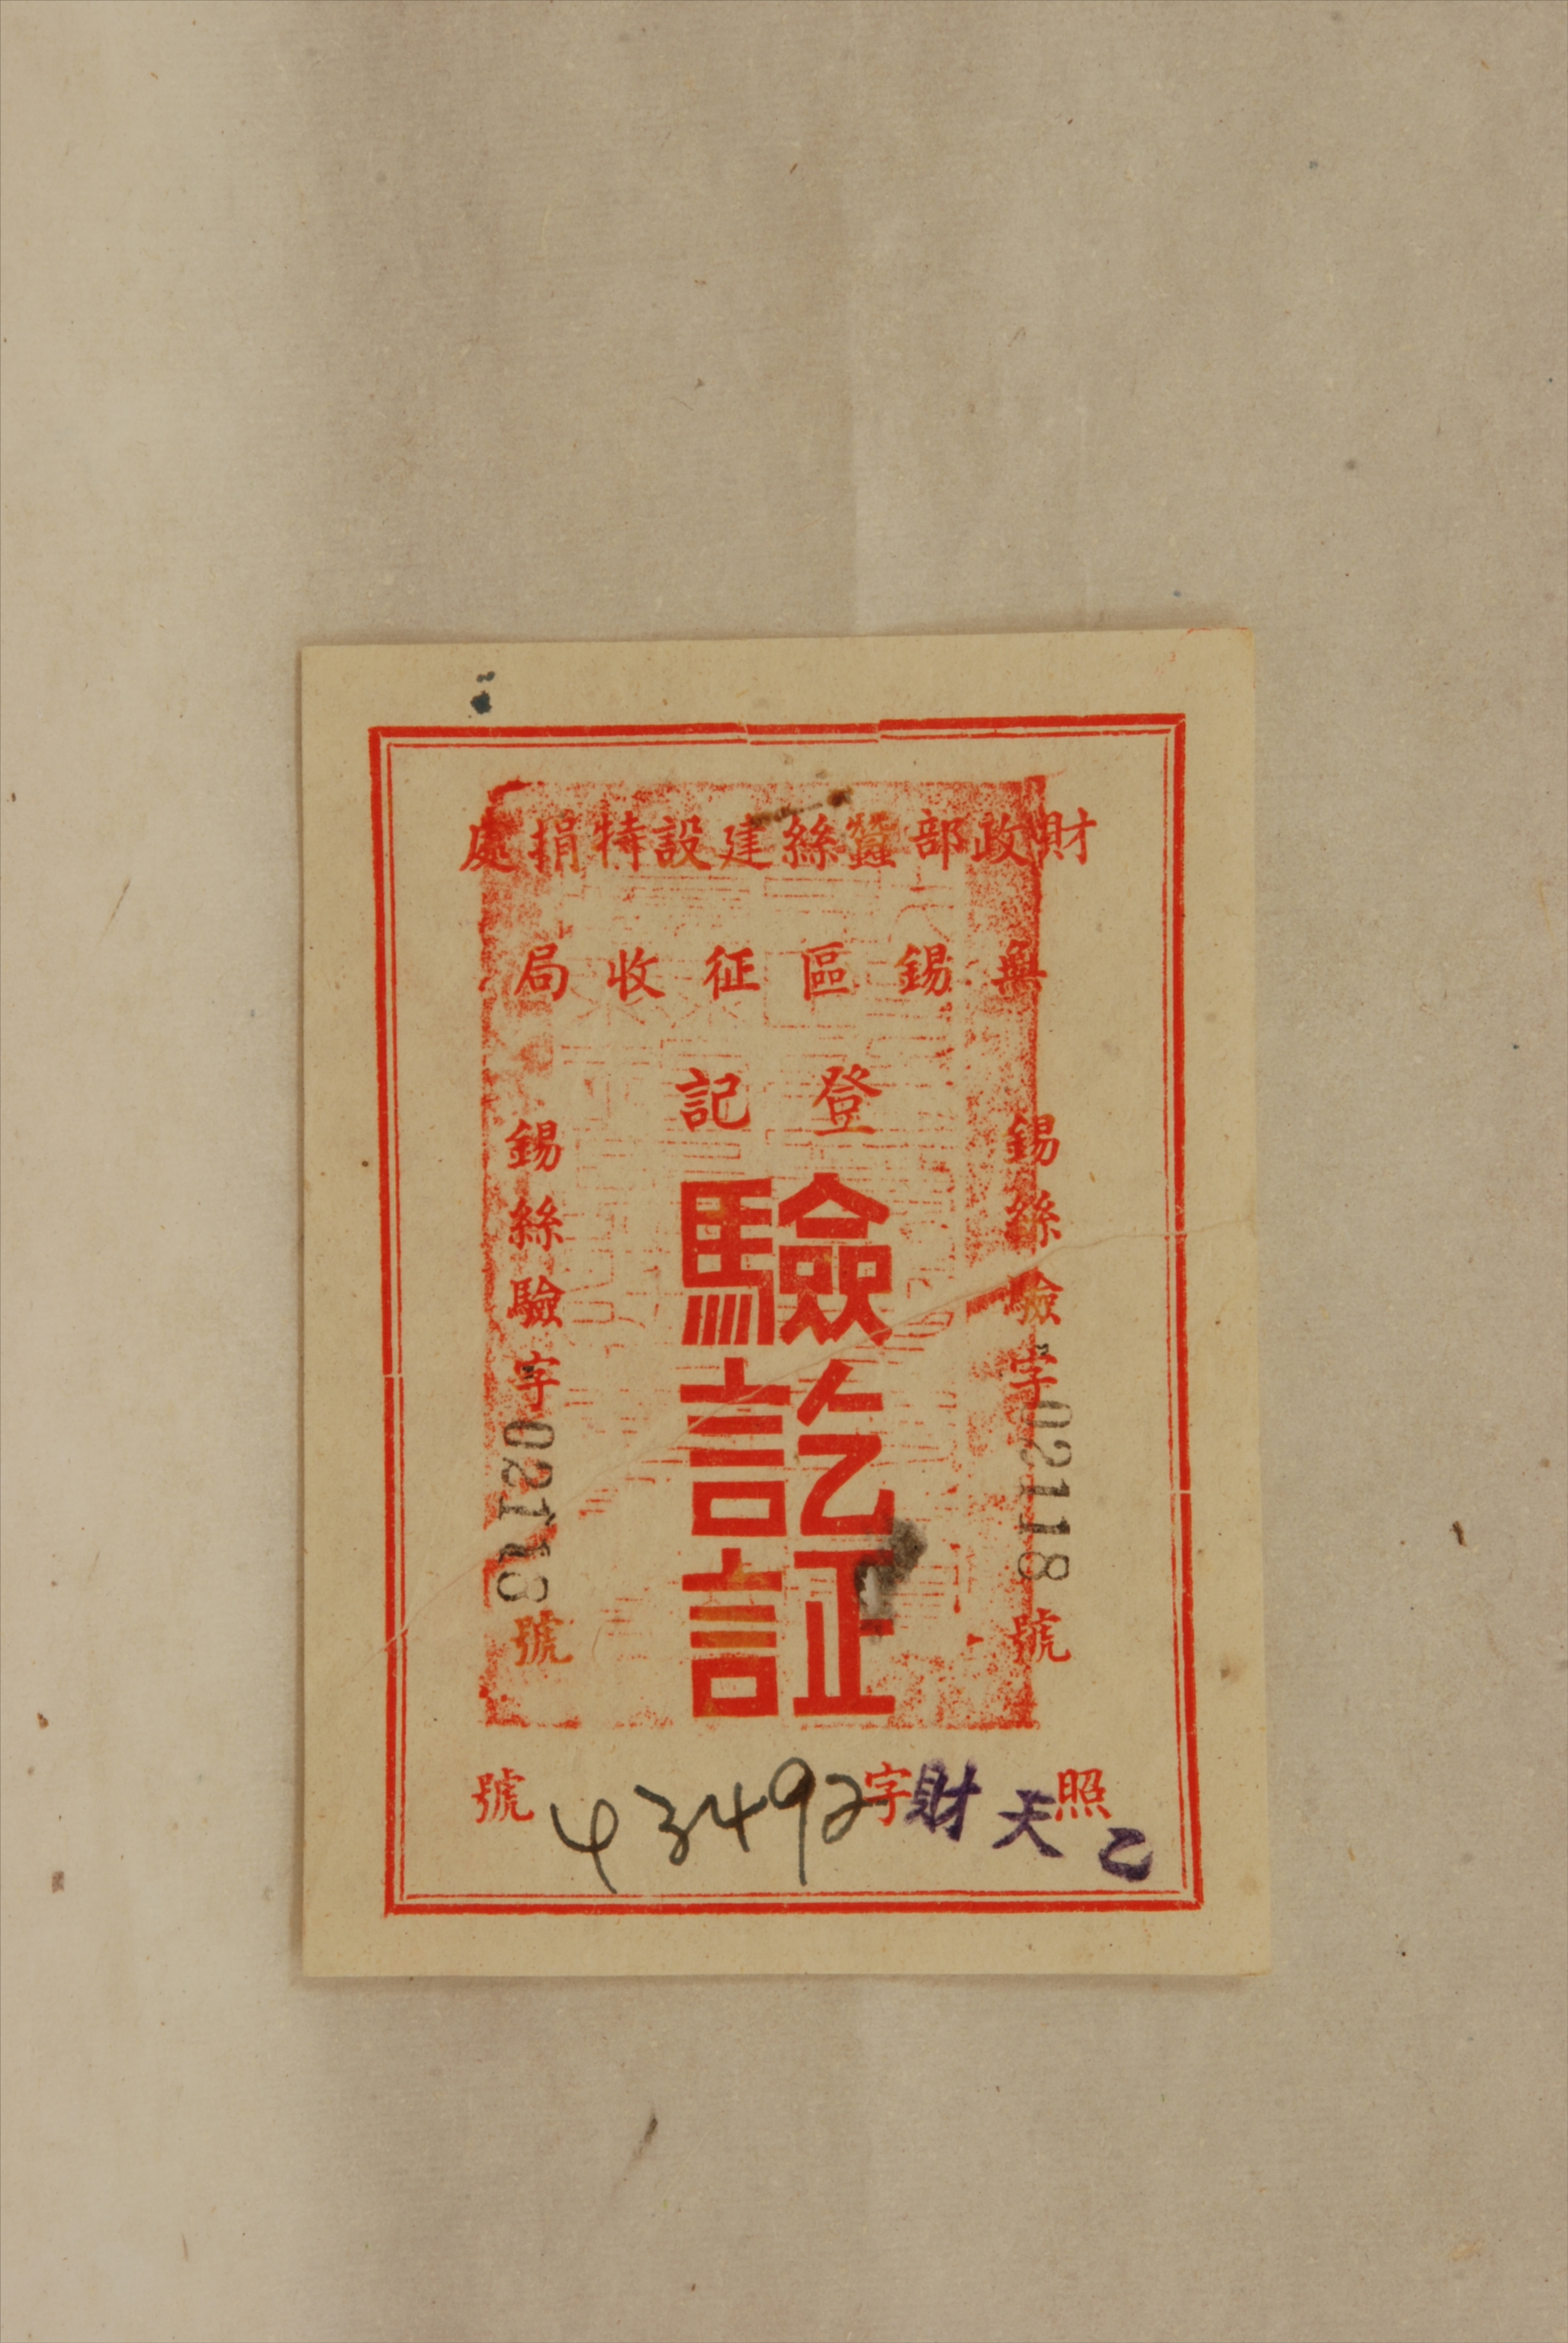 財政部蠶絲建設特捐處
無錫區征收局
登記
驗訖証
錫絲驗字02118號
錫絲驗字02118號
照乙天財字43492號